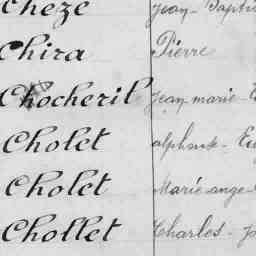 Cheze Jean-Baptis
Chira Pierre
Chocheril Jean marie-
Cholet alphonse-
Cholet Marie ange-
Chollet Charles-